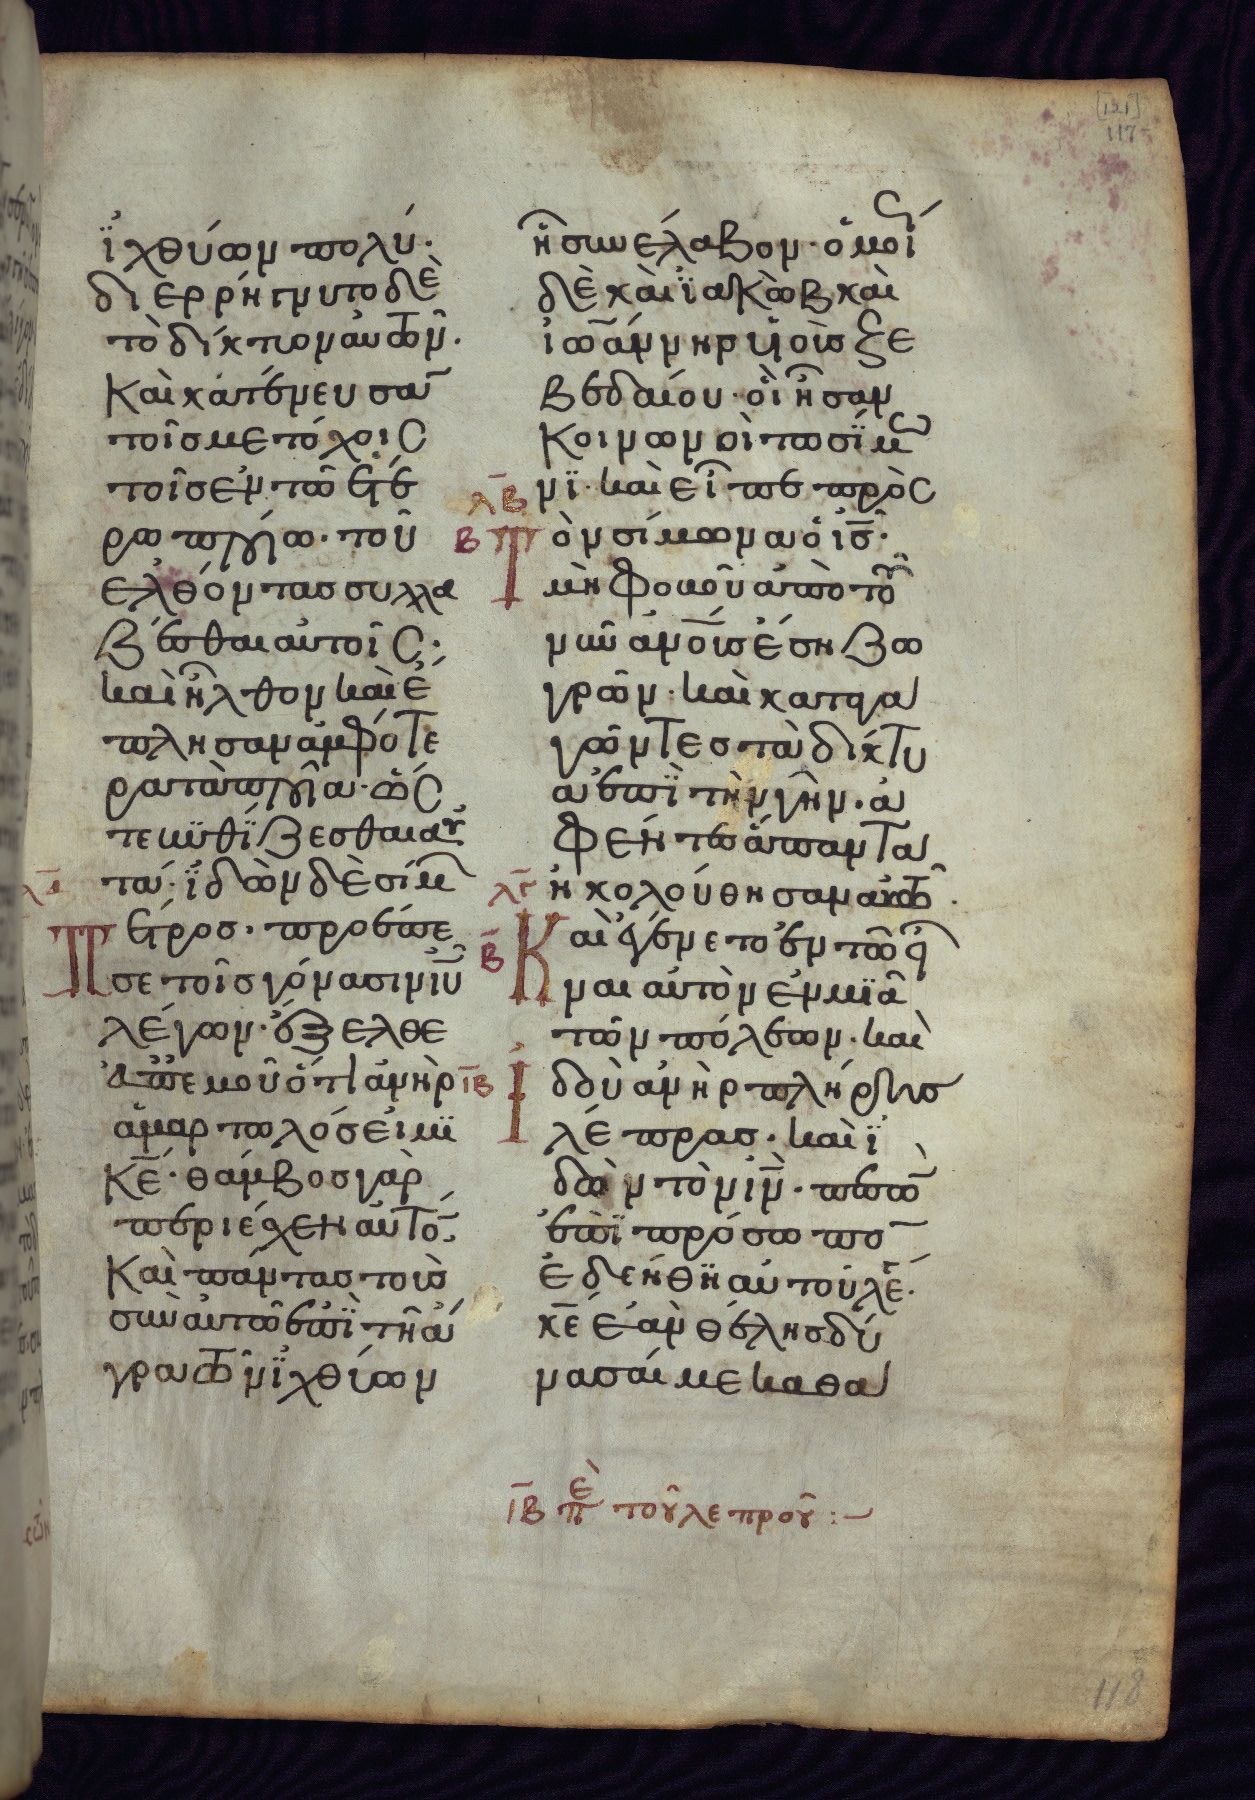 [121]
117
ἰχθύων πολύ·
διερρήγνυτο δὲ
τὸ δίκτυον αὐτῶν·
Καὶ κατένευσαν
τοῖς μετόχοις
τοῖς ἐν τῶ ἑτέ
ρω πλοίω· τοῦ
ἐλθόντας συλλα
βέσθαι αὐτοῖς·
καὶ ἦλθον καὶ ἔ
πλησαν ἀμφότε
ρα τὰ πλοῖα· ὥς
τε βυθίζεσθαι αὐ
τά· ἰδὼν δὲ σίμων
Πέτρος· προσέπε
σε τοῖς γόνασιν ιῦ
λέγων· ἔξελθε
ἀπ' ἐμοῦ ὅτι ἀνὴρ
ἁμαρτωλός εἰμι
κε̄· θάμβος γὰρ
περιέσχεν αὐτόν·
Καὶ πάντας τοὺς
σὺν αὐτῶ ἐπὶ τῆ ἄ
γρα τῶν ἰχθύων
ἧ συνέλαβον· ὁμοί
δὲ καὶ ἰάκωβ καὶ
ἰωάννην υἱοὺς ζε
βεδαίου· οἳ ἦσαν
κοινωνοὶ τῶ σίμω
νι· καὶ εἶπε πρὸς
λβ
β Τὸν σίμωνα ὁ ις̄·
μὴ φοβοῦ ἀπὸ τοῦ
νῦν ἀνους ἔση ζω
γρῶν· καὶ καταγα
γόντες τὰ δίκτυ
α ἐπὶ τὴν γῆν· ἀ
φέντες ἅπαντα
ἠκολούθησαν αὐτῶ·
β Καὶ ἐγένετο ἐν τῶ εἶ
ναι αὐτὸν ἐν μιᾶ
τῶν πόλεων· καὶ
ιβ Ἰδοὺ ἀνὴρ πλήρης
λέπρας· καὶ ἰ
δὼν τὸν ιν̄· πεσὼν
ἐπὶ πρόσωπον
ἐδεήθη αὐτοῦ λέ·
κε̄ ἐὰν θέλης δύ
νασαί με καθα
ιβ πε τοῦ λεπροῦ :-
118